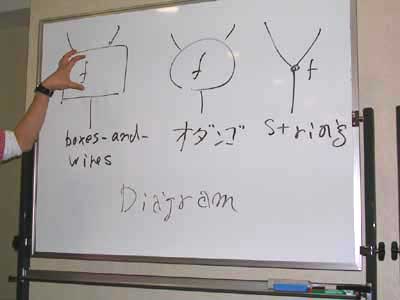 f f f
boxes-and-
wires
オダンゴ
string
Diagram